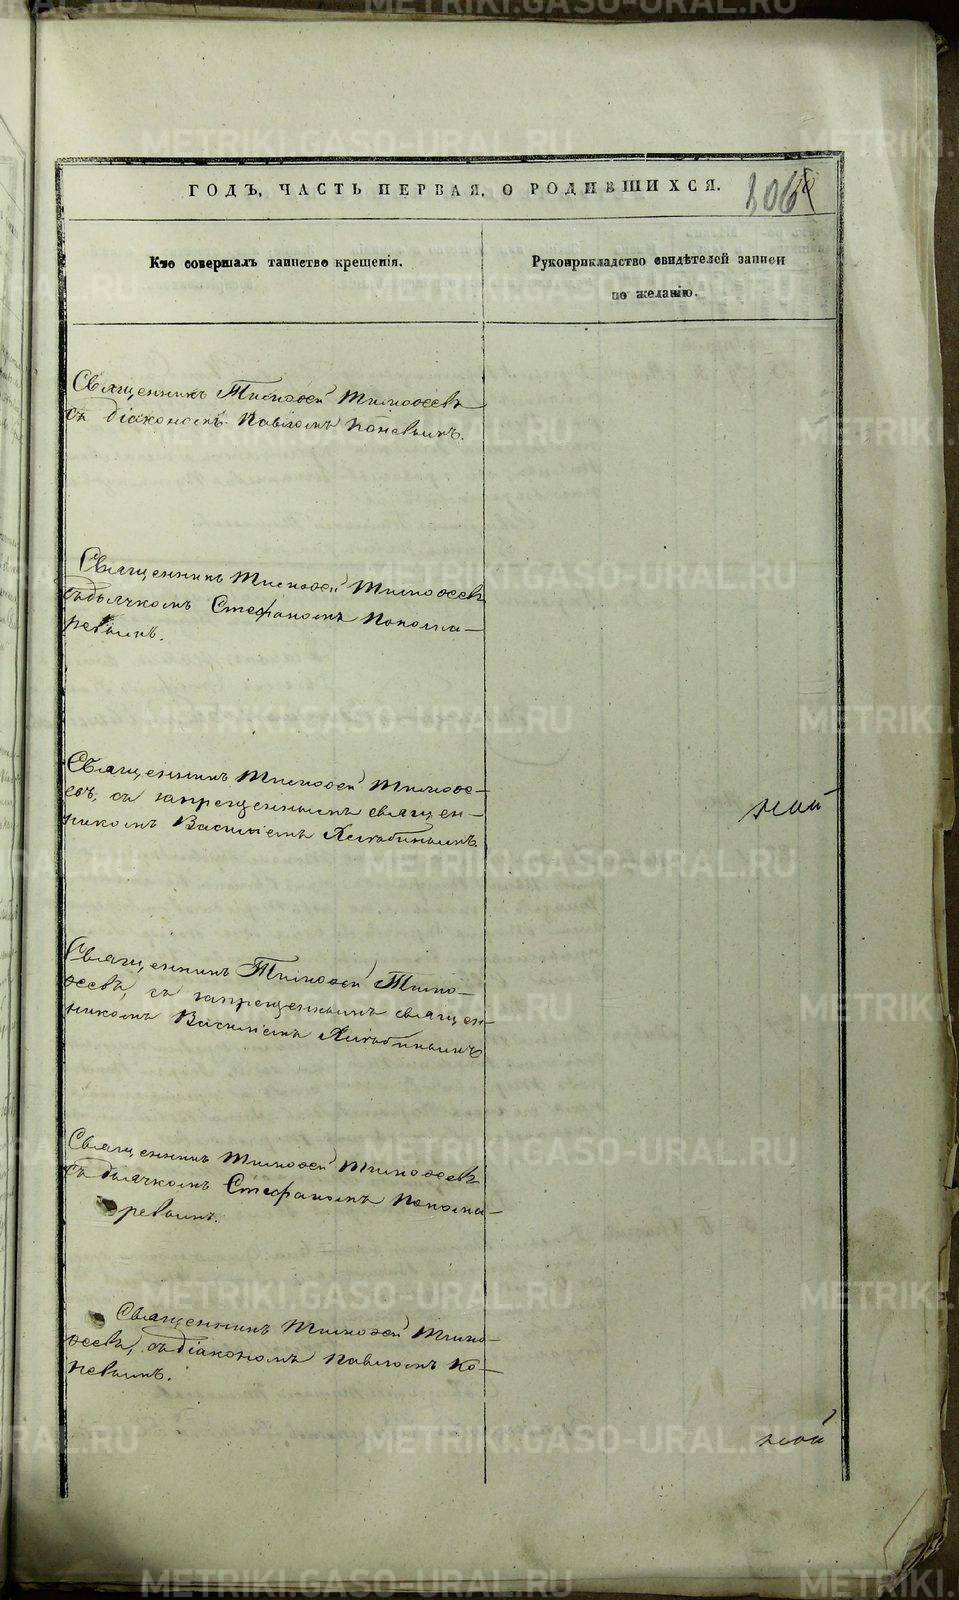 ГОДЪ, ЧАСТЬ ПЕРВАЯ, О РОДИВШИХСЯ.
106
Кто совершалъ таинство крещенія.
Рукоприкладство свидѣтелей записи
по желанію.
Священникъ Тимоѳей Тимоѳеевъ
съ діакономъ Павломъ Коневымъ.
Священникъ Тимоѳей Тимоѳеевъ
съ дьячкомъ Стефаномъ Понома-
ревымъ.
Священникъ Тимоѳей Тимоѳе-
евъ, съ запрещеннымъ священ-
никомъ Василіемъ
Священникъ Тимоѳей Тимо-
ѳеевъ, съ запрещеннымъ священ-
никомъ Василіемъ
Священникъ Тимоѳей Тимоѳеевъ
съ дьячкомъ Стефаномъ Понома-
ревымъ.
Священникъ Тимоѳей Тимо-
ѳеевъ, съ діакономъ Павломъ Ко-
невымъ.
METRIKI.GASO-URAL.RU